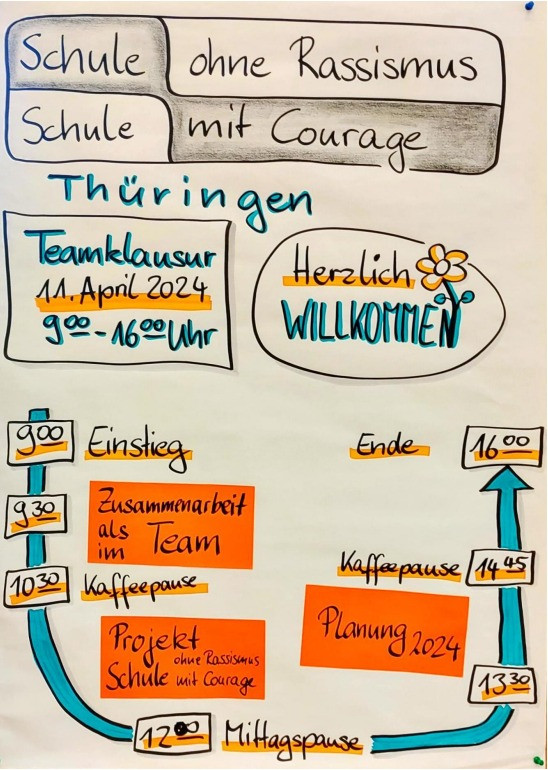 Schule ohne Rassismus
Schule mit Courage
Thüringen
Teamklausur
11. April 2024
9⁰⁰ - 16⁰⁰ Uhr
Herzlich
WILLKOMMEN
9⁰⁰ Einstieg
9³⁰ Zusammenarbeit
als
im Team
10³⁰ Kaffeepause
Projekt
ohne Rassismus
Schule mit Courage
12⁰⁰ Mittagspause
13³⁰
Planung 2024
Kaffeepause 14⁴⁵
Ende 16⁰⁰